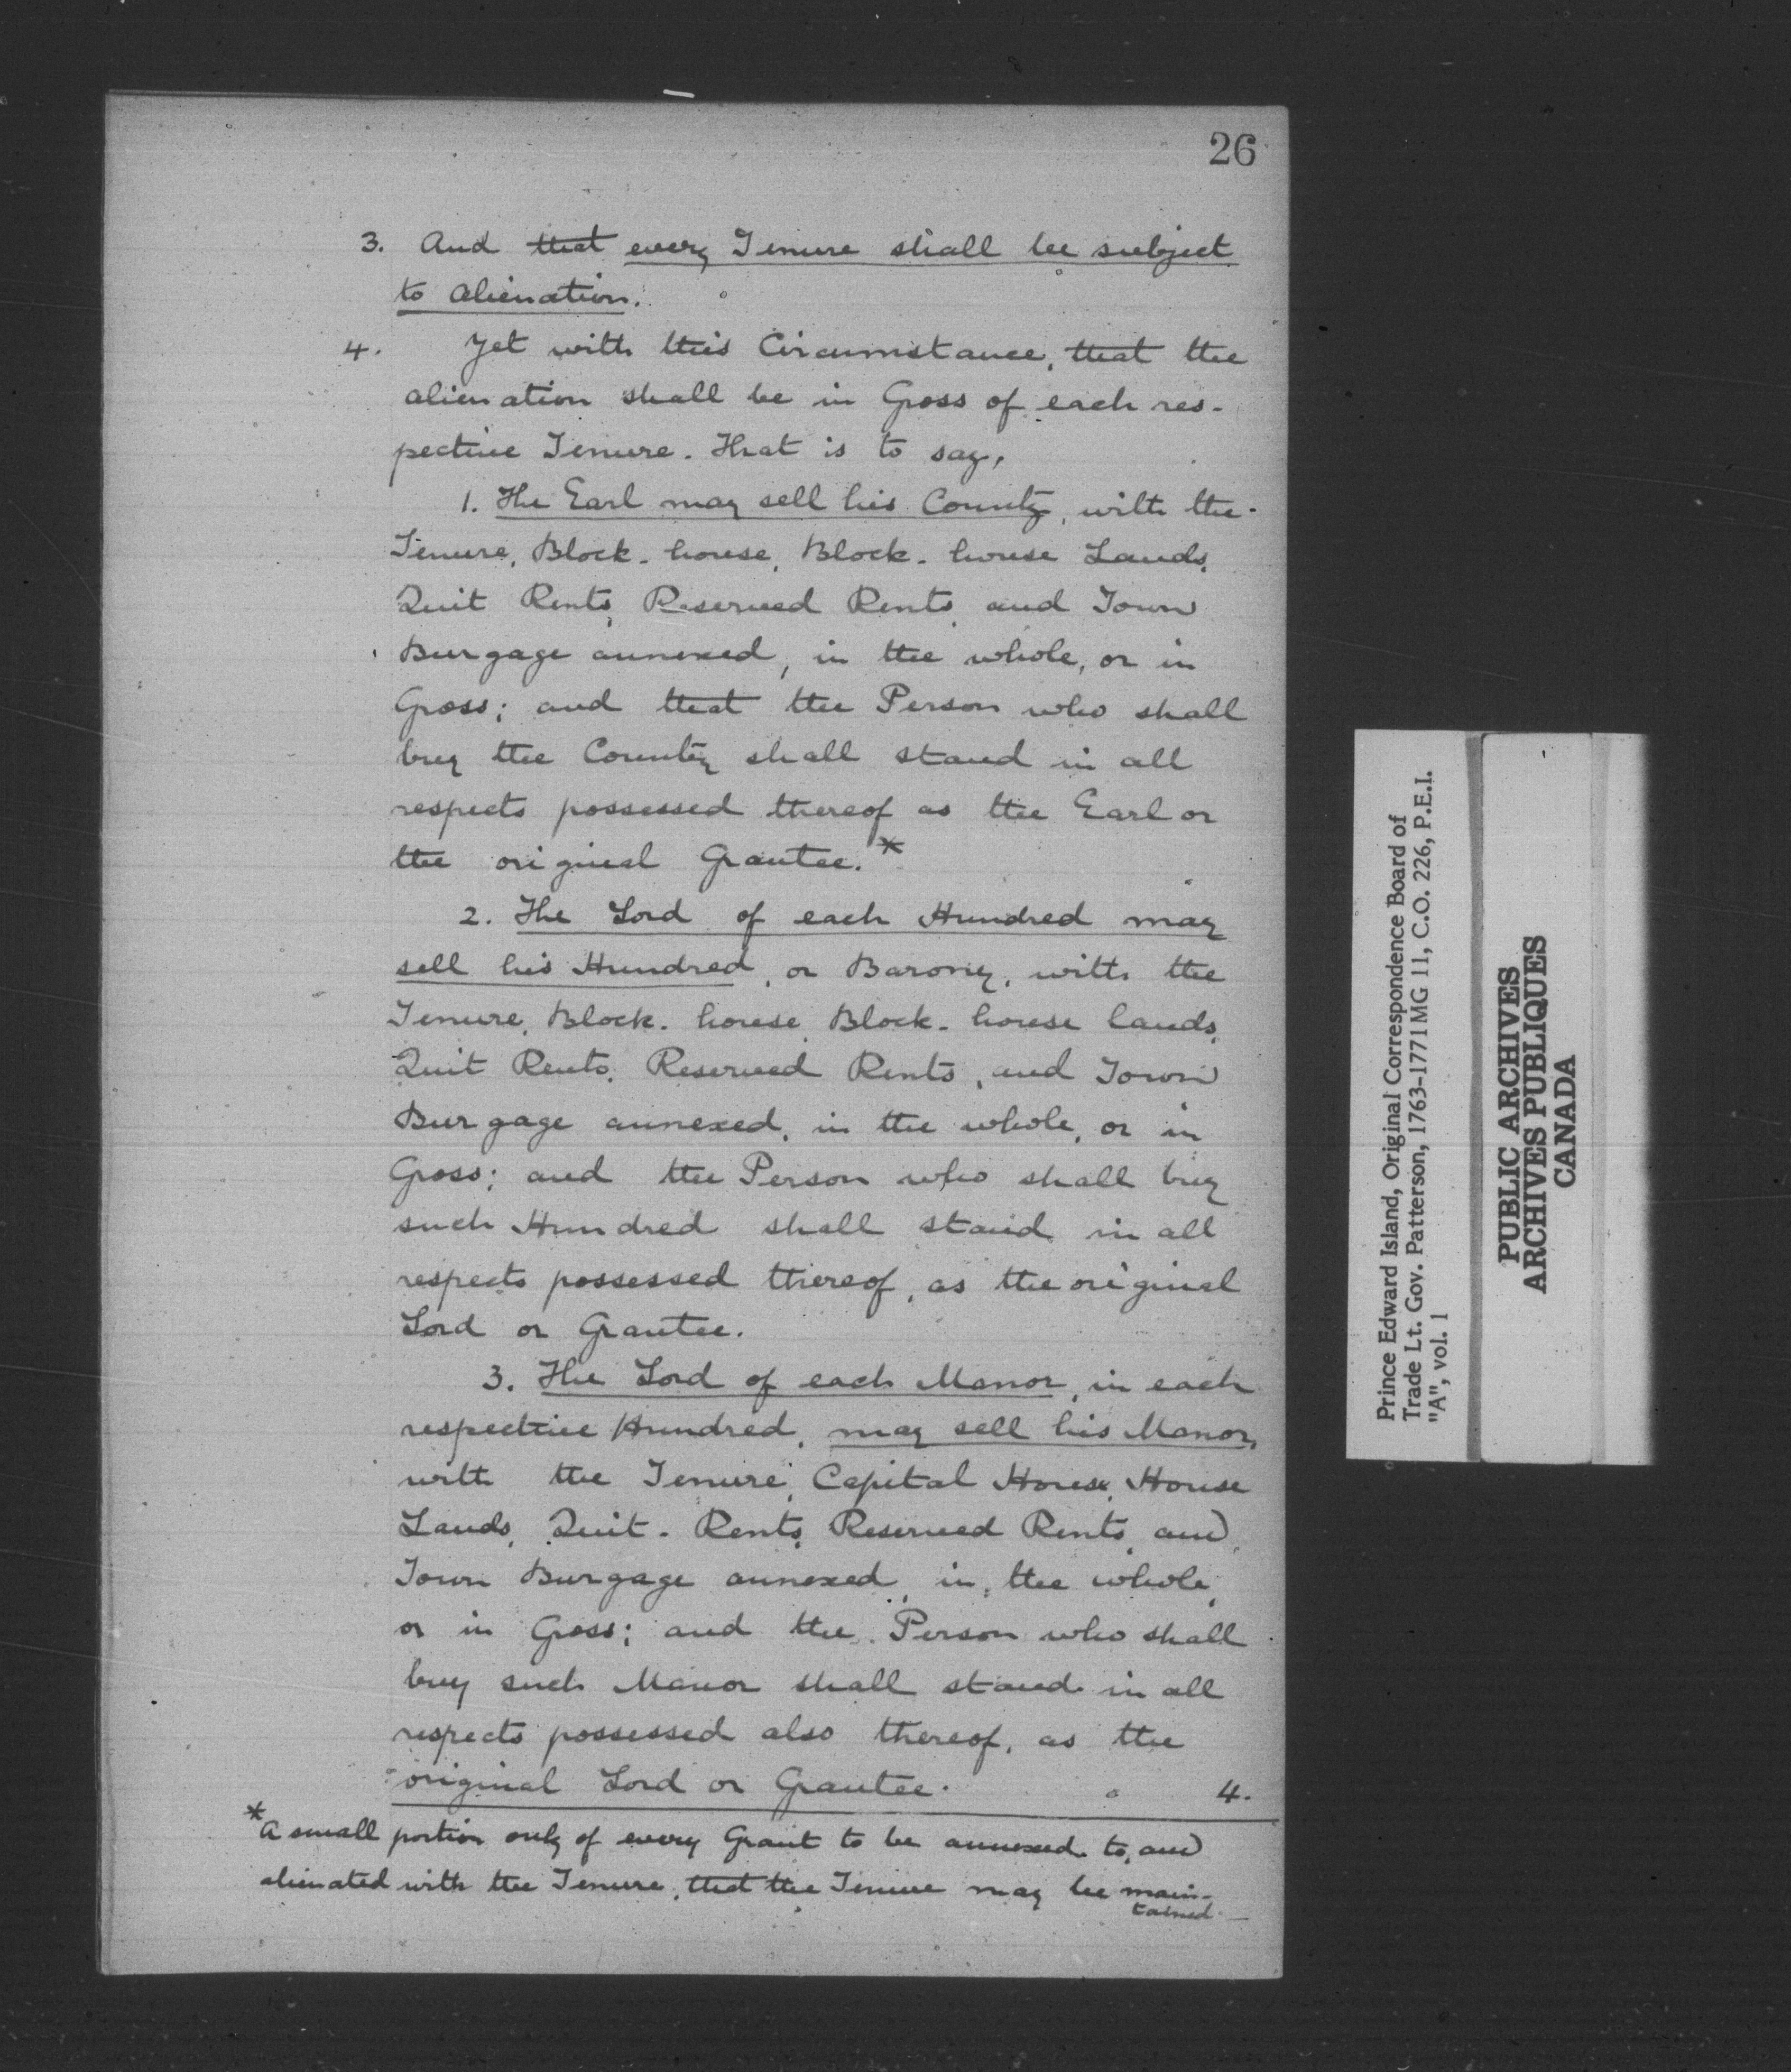 26
3. And that every Tenure shall be subject
to alienation.
4. Yet with this Circumstance, that the
alienation shall be in Gross of each res-
pective Tenure. That is to say,
1. The Earl may sell his County, with the
Tenure, Block-house, Block-house Lands,
Quit Rents, Reserved Rents, and Town
Burgage annexed, in the whole, or in
Gross; and that the Person who shall
buy the County shall stand in all
respects possessed thereof as the Earl or
the original Grantee.*
2. The Lord of each Hundred may
sell his Hundred, or Barony, with the
Tenure, Block-house, Block-house lands,
Quit Rents, Reserved Rents, and Town
Burgage annexed, in the whole, or in
Gross; and the Person who shall buy
such Hundred shall stand in all
respects possessed thereof, as the original
Lord or Grantee.
3. The Lord of each Manor, in each
respective Hundred, may sell his Manor,
with the Tenure, Capital House, House
Lands, Quit-Rents, Reserved Rents, and
Town Burgage annexed, in the whole,
or in Gross; and the Person who shall
buy such Manor shall stand in all
respects possessed also thereof, as the
original Lord or Grantee. 4.
*A small portion only of every Grant to be annexed to, and
alienated with the Tenure, that the Tenure may be main-
tained.
Prince Edward Island, Original Correspondence Board of
Trade Lt. Gov. Patterson, 1763-1771 MG 11, C.O. 226, P.E.I.
"A", vol. 1
PUBLIC ARCHIVES
ARCHIVES PUBLIQUES
CANADA